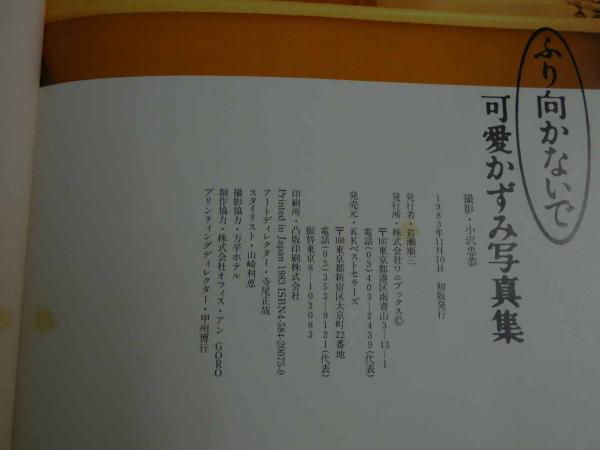 ふり向かないで
可愛かずみ写真集
撮影・小沢忠恭
1983年11月10日 初版発行
発行者・岩瀬順三
発行所・株式会社ワニブックス©
〒107東京都港区南青山3―13―1
電話(03)403―2439(代表)
発売元・KKベストセラーズ
〒160東京都新宿区大京町22番地
電話(03)353―9121(代表)
振替東京8―103083
印刷所・凸版印刷株式会社
Printed in Japan 1983 ISBN4-584-20075-0
アートディレクター・寺尾正哉
スタイリスト・山崎利恵
撮影協力・万平ホテル
制作協力・株式会社オフィス・アン GORO
プリンティングディレクター・甲州博行